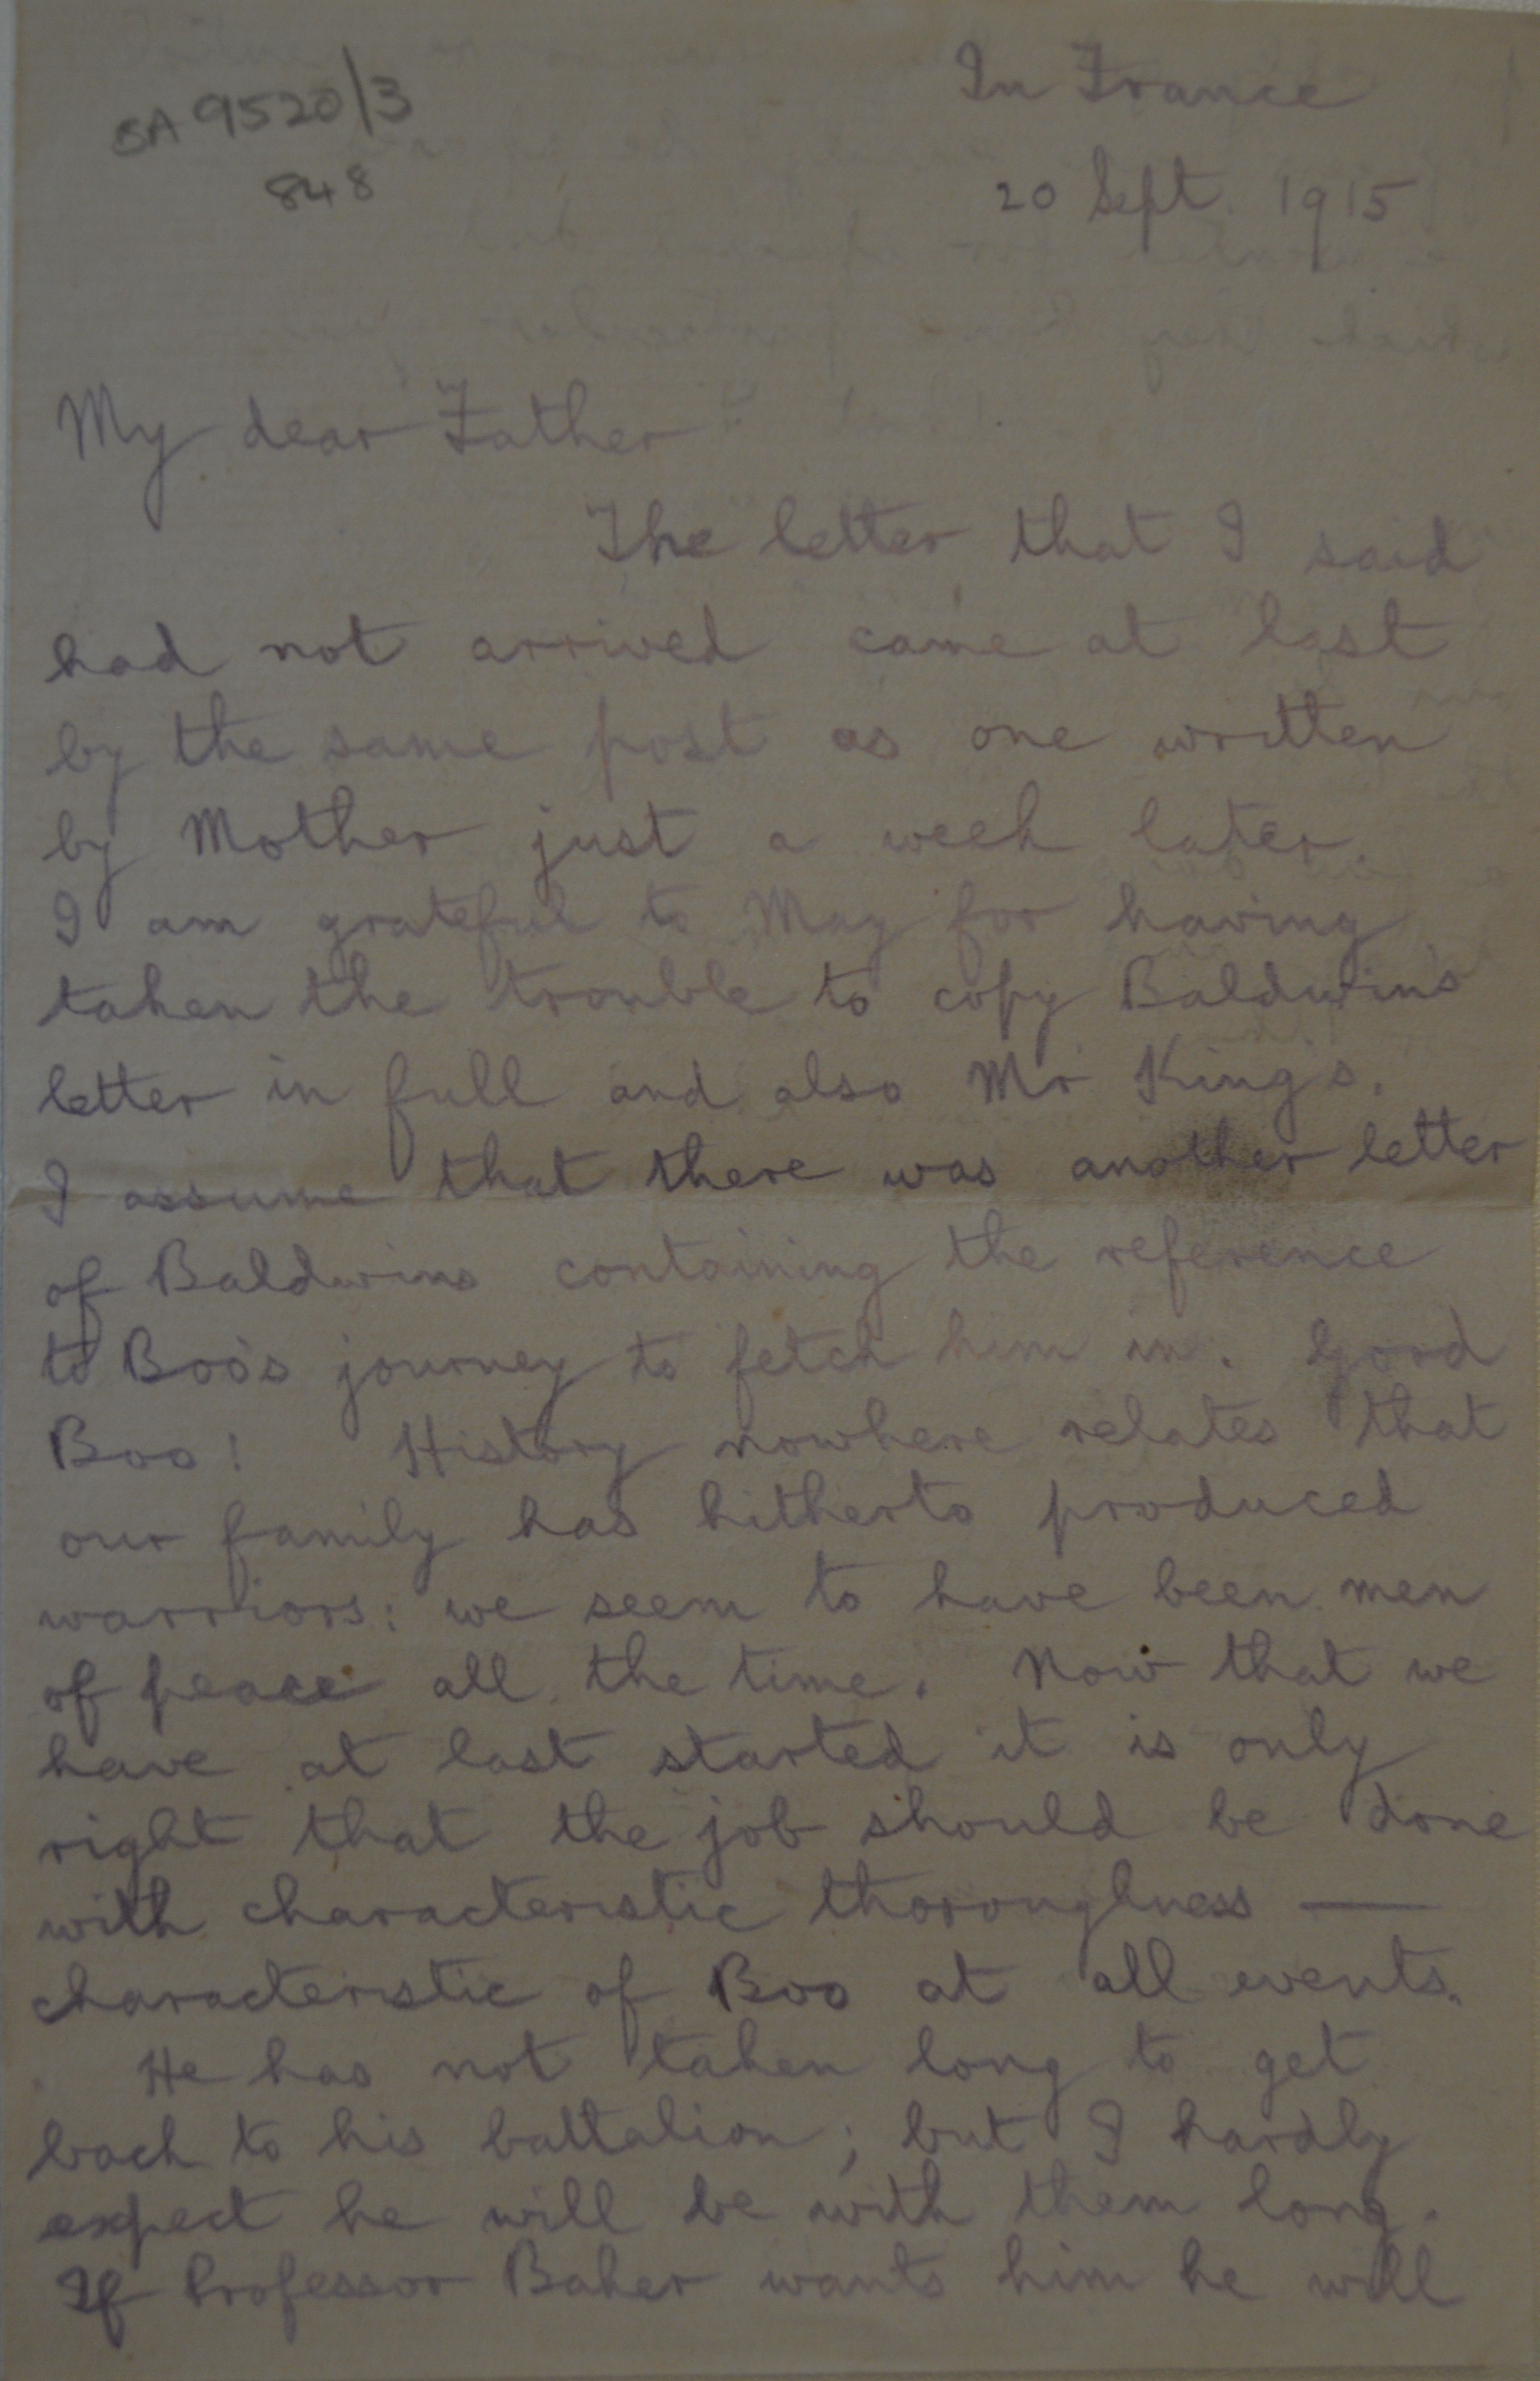 BA 9520/3
848
In France
20 Sept. 1915
My dear Father
The letter that I said
had not arrived came at last
by the same post as one written
by Mother just a week later.
I am grateful to May for having
taken the trouble to copy Baldwin's
letter in full and also Mr King's.
I assume that there was another letter
of Baldwins containing the reference
to Boo's journey to fetch him in. Good
Boo! History nowhere relates that
our family has hitherto produced
warriors: we seem to have been men
of peace all the time. Now that we
have at last started it is only
right that the job should be done
with characteristic thoroughness —
characteristic of Boo at all events.
He has not taken long to get
back to his battalion; but I hardly
expect he will be with them long.
If Professor Baker wants him he will